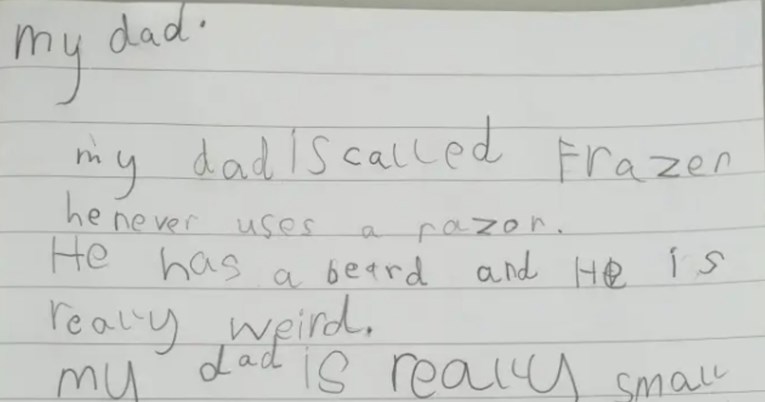 my dad.
my dad is called Frazer
he never uses a razor.
He has a beard and He is
really weird.
my dad is really small